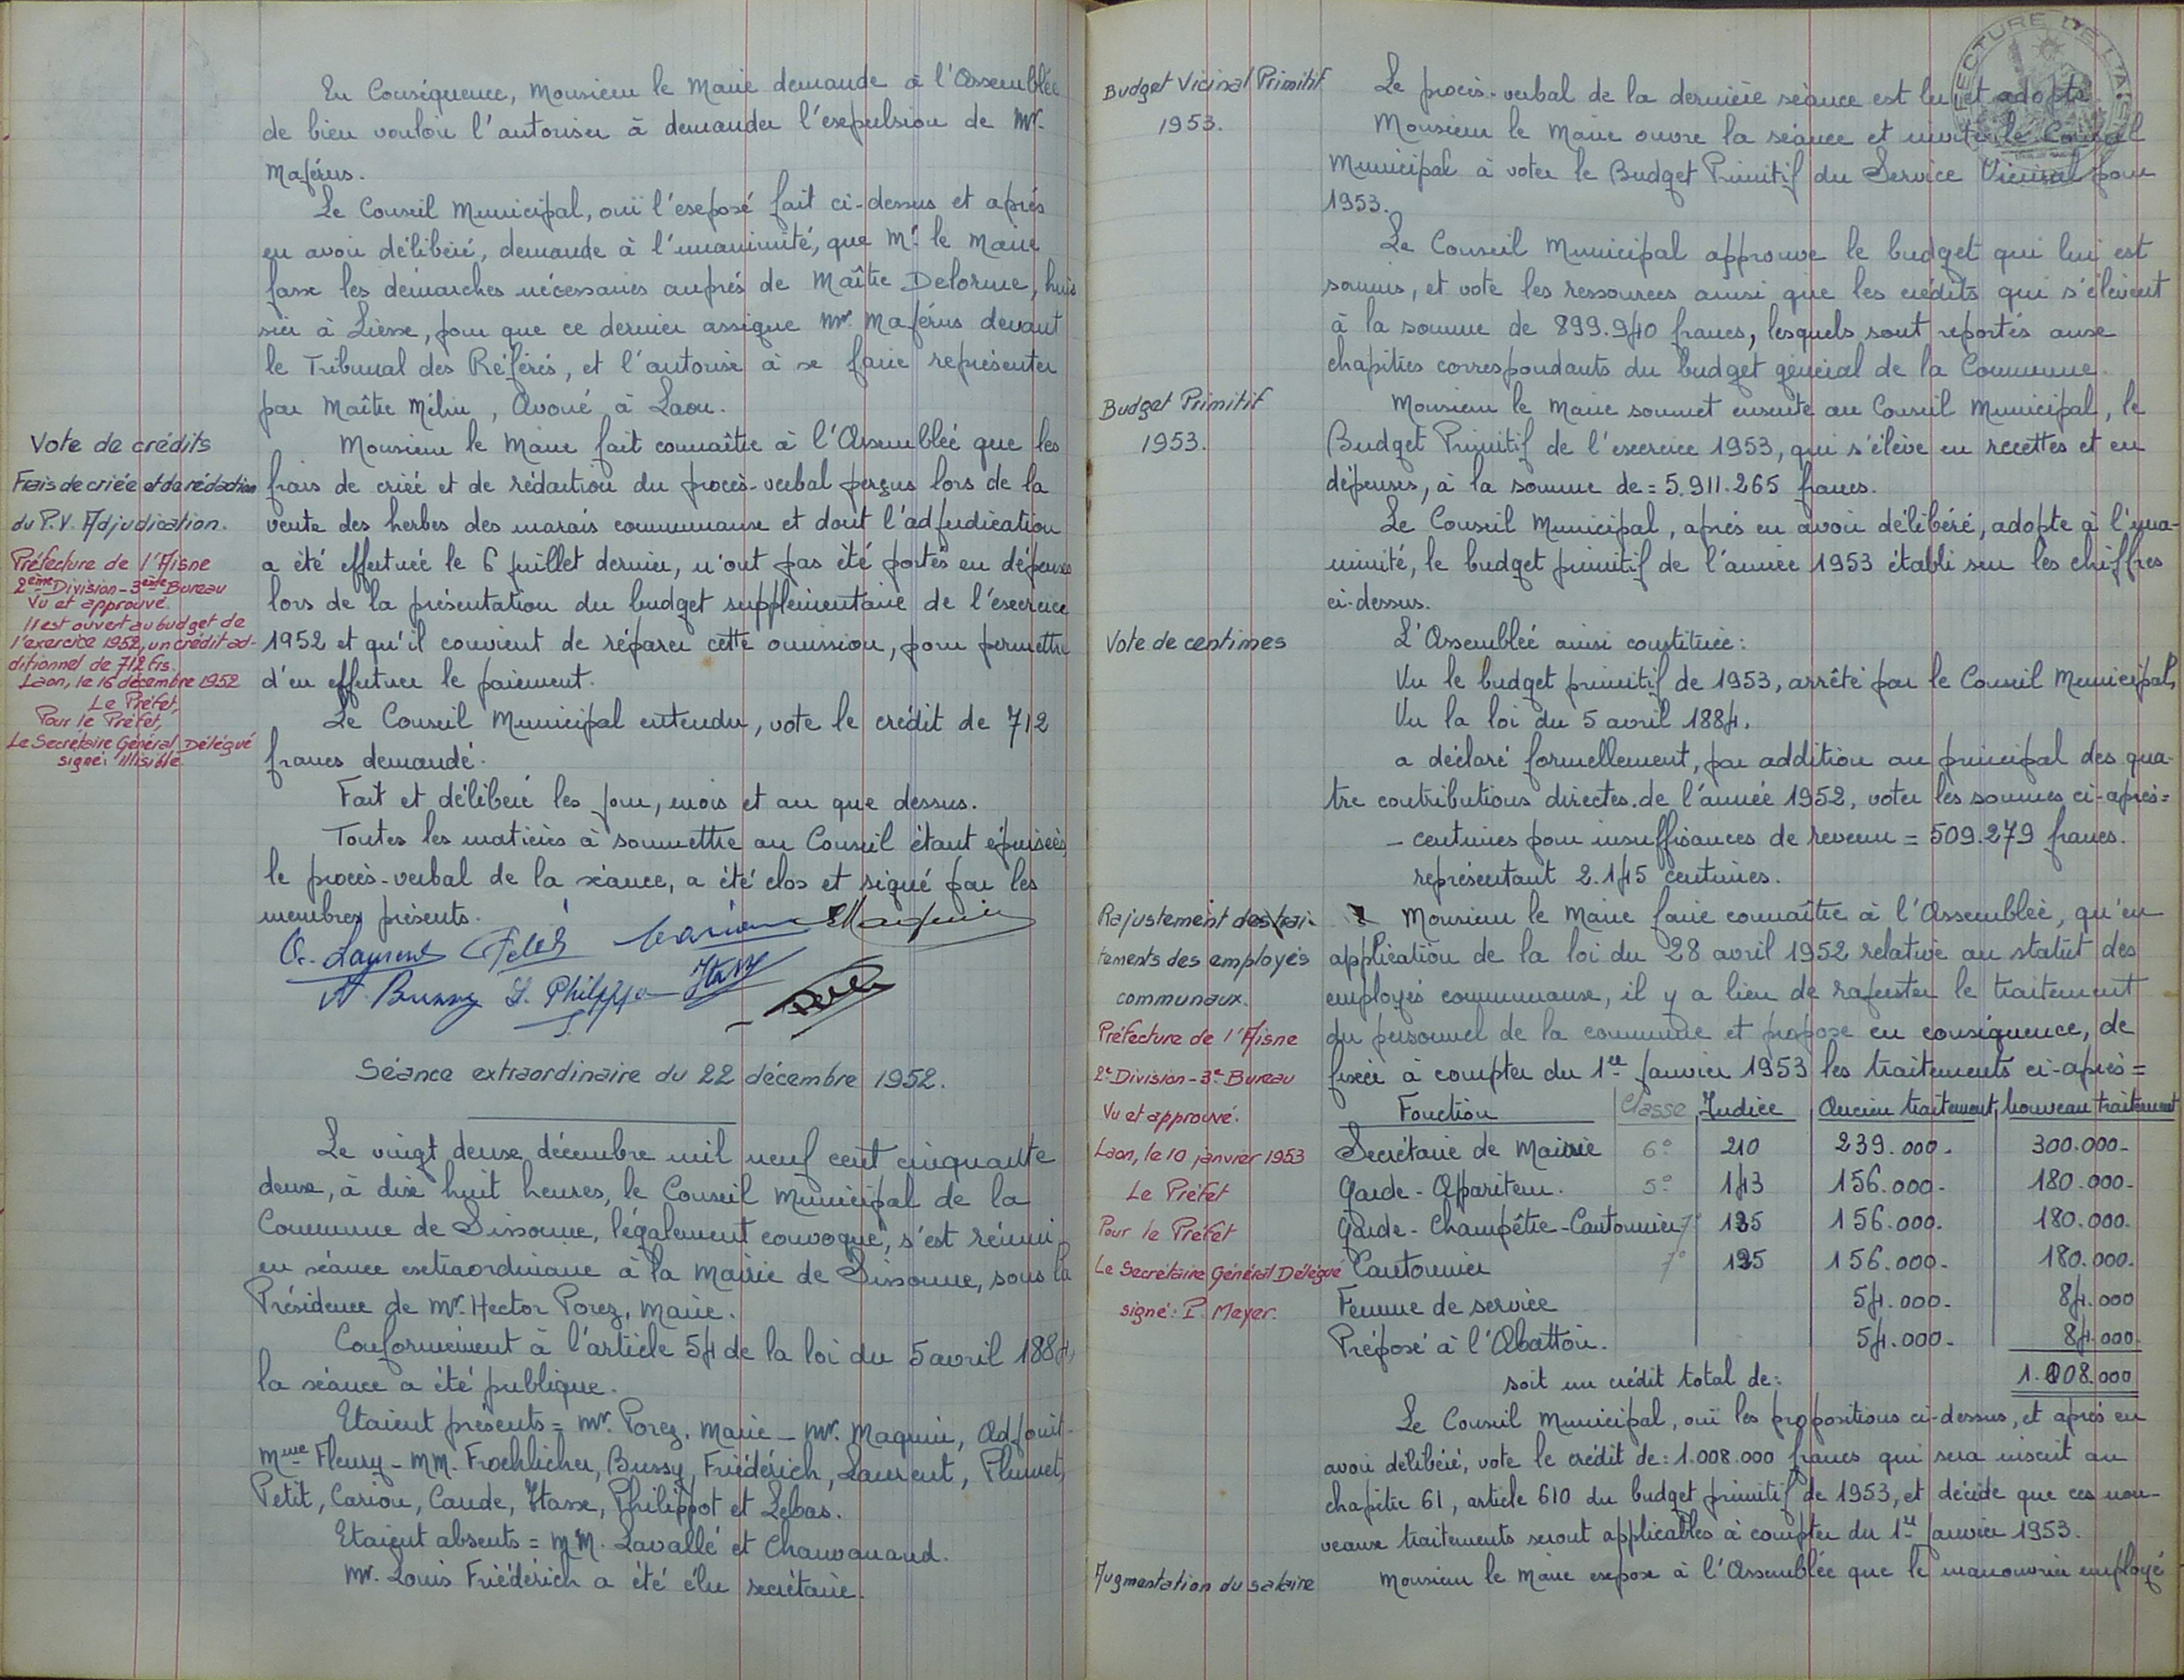 En Conséquence, Monsieur le Maire demande à l'Assemblée
de bien vouloir l'autoriser à demander l'expulsion de Mr.
Majérus.
Le Conseil Municipal, ouï l'exposé fait ci-dessus et après
en avoir délibéré, demande à l'unanimité, que Mr. le Maire
fasse les démarches nécessaires auprès de Maître Delorme, huis
sier à Liesse, pour que ce dernier assigne Mr. Majérus devant
le Tribunal des Référés, et l'autorise à se faire représenter
par Maître Mélin, Avoué à Laon.
Vote de crédits
Frais de criée et de rédaction
du P.V. Adjudication.
Préfecture de l'Aisne
2ème Division - 3ème Bureau
Vu et approuvé.
Il est ouvert au budget de
l'exercice 1952, un crédit ad-
ditionnel de 712 frs.
Laon, le 16 décembre 1952
Le Préfet,
Pour le Préfet,
Le Secrétaire Général Délégué
signé: illisible.
Monsieur le Maire fait connaître à l'Assemblée que les
frais de criée et de rédaction du procès-verbal perçus lors de la
vente des herbes des marais communaux et dont l'adjudication
a été effectuée le 6 juillet dernier, n'ont pas été portés en dépenses
lors de la présentation du budget supplémentaire de l'exercice
1952 et qu'il convient de réparer cette omission, pour permettre
d'en effectuer le paiement.
Le Conseil Municipal entendu, vote le crédit de 712
francs demandé.
Fait et délibéré les jour, mois et an que dessus.
Toutes les matières à soumettre au Conseil étant épuisées,
le procès-verbal de la séance, a été clos et signé par les
membres présents.
Laurent
A Bussy L. Philippo
Séance extraordinaire du 22 décembre 1952.
Le vingt deux décembre mil neuf cent cinquante
deux, à dix huit heures, le Conseil Municipal de la
Commune de Sissonne, légalement convoqué, s'est réuni
en séance extraordinaire à la Mairie de Sissonne, sous la
Présidence de Mr. Hector Porez, Maire.
Conformément à l'article 54 de la loi du 5 avril 1884,
la séance a été publique.
Etaient présents = Mr. Porez, Maire - Mr. Maquin, Adjoint-
Mme Fleury - MM. Froehlicher, Bussy, Friédérich, Laurent, Plumet,
Petit, Cariou, Caude, Itasse, Philippot et Lebas.
Etaient absents = MM. Lavallé et Chauvanaud.
Mr. Louis Friédérich a été élu secrétaire.
Budget Vicinal Primitif
1953.
Le procès-verbal de la dernière séance est lu et adopté
Monsieur le Maire ouvre la séance et invite le Conseil
Municipal à voter le Budget Primitif du Service Vicinal pour
1953.
Le Conseil Municipal approuve le budget qui lui est
soumis, et vote les ressources ainsi que les crédits qui s'élèvent
à la somme de 899.940 francs, lesquels sont reportés aux
chapitres correspondants du budget général de la Commune.
Budget Primitif
1953.
Monsieur le Maire soumet ensuite au Conseil Municipal, le
Budget Primitif de l'exercice 1953, qui s'élève en recettes et en
dépenses, à la somme de = 5.911.265 francs.
Le Conseil Municipal, après en avoir délibéré, adopte à l'una-
nimité, le budget primitif de l'année 1953 établi sur les chiffres
ci-dessus.
Vote de centimes
L'Assemblée ainsi constituée:
Vu le budget primitif de 1953, arrêté par le Conseil Municipal,
Vu la loi du 5 avril 1884.
a déclaré formellement, par addition au principal des qua-
tre contributions directes de l'année 1952, voter les sommes ci-après=
- centimes pour insuffisances de revenu = 509.279 francs.
représentant 2.145 centimes.
Rajustement des trai-
tements des employés
communaux.
Préfecture de l'Aisne
2e Division - 3e Bureau
Vu et approuvé.
Laon, le 10 janvier 1953
Le Préfet
Pour le Préfet
Le Secrétaire Général Délégué
signé: P. Meyer.
Monsieur le Maire faire connaître à l'Assemblée, qu'en
application de la loi du 28 avril 1952 relative au statut des
employés communaux, il y a lieu de rajuster le traitement
du personnel de la commune et propose en conséquence, de
fixer à compter du 1er Janvier 1953 les traitements ci-après =
Fonction Classe Indice Ancien traitement Nouveau traitement
Secrétaire de Mairie 6° 210 239.000- 300.000-
Garde-Appariteur. 5° 143 156.000- 180.000-
Garde-Champêtre-Cantonnier 7° 135 156.000. 180.000.
Cantonnier 7° 125 156.000- 180.000-
Femme de service 54.000- 84.000
Préposé à l'Abattoir. 54.000- 84.000.
soit un crédit total de: 1.008.000
Le Conseil Municipal, ouï les propositions ci-dessus, et après en
avoir délibéré, vote le crédit de: 1.008.000 francs qui sera inscrit au
chapitre 61, article 610 du budget primitif de 1953, et décide que ces nou-
veaux traitements seront applicables à compter du 1er Janvier 1953.
Augmentation du salaire
Monsieur le Maire expose à l'Assemblée que le manouvrier employé